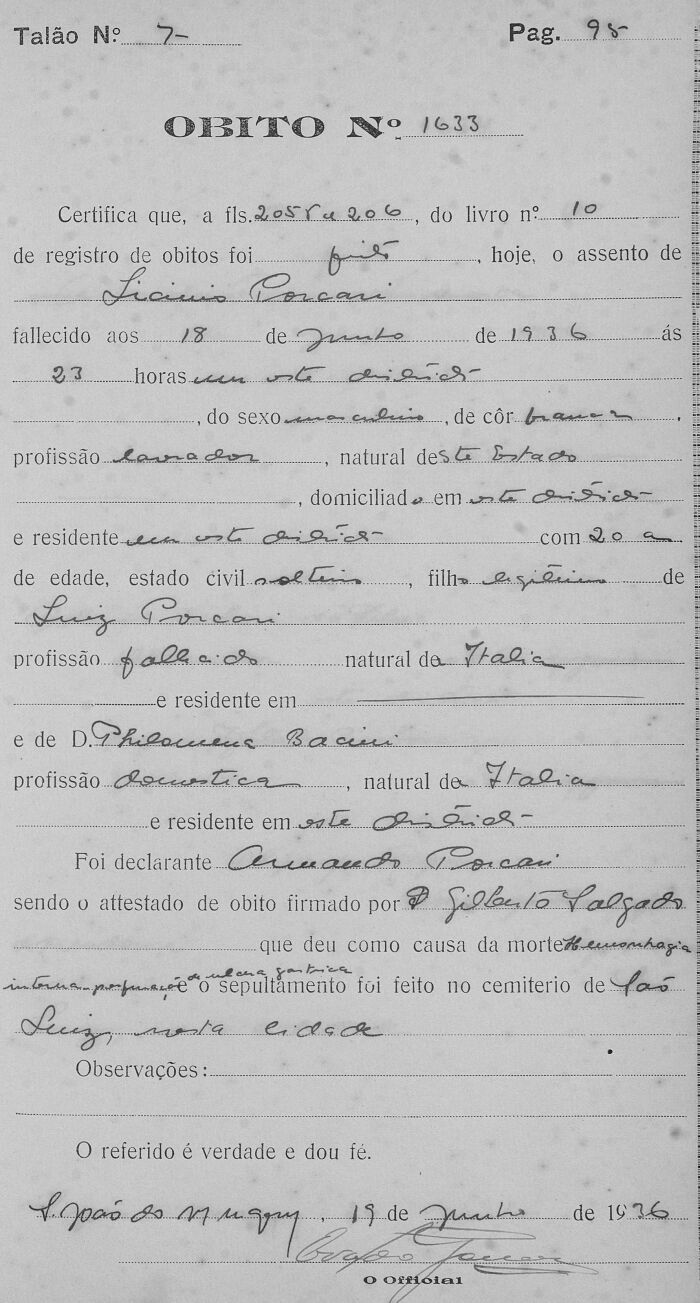 Talão Nº 7- Pag. 95
OBITO Nº 1633
Certifica que, a fls. 205V a 206, do livro nº 10
de registro de obitos foi feito, hoje, o assento de
Licinio Porcari
fallecido aos 18 de Junho de 1936 ás
23 horas em este districto
, do sexo masculino, de côr branca.
profissão lavrador, natural deste Estado
, domiciliado em este districto
e residente em este districto com 20 a
de edade, estado civil solteiro, filho legitimo de
Luiz Porcari
profissão fallecido natural da Italia
e residente em
e de D. Philomena Bacini
profissão domestica, natural da Italia
e residente em este districto
Foi declarante Armando Porcari
sendo o attestado de obito firmado por D Gilberto Salgado
que deu como causa da morte Hemorrhagia
interna-perfuração de ulcera gastrica e o sepultamento foi feito no cemiterio de São
Luiz, nesta cidade
Observações:
O referido é verdade e dou fé.
S. João do Muquy, 19 de Junho de 1936
O Official